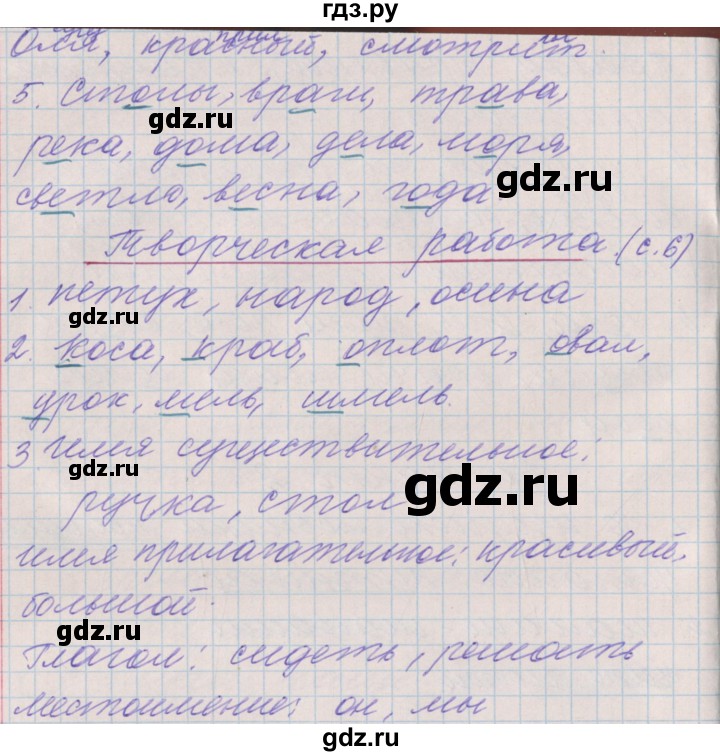 гдз.ру
Оля, красный, смотрит.
5. Столы, враги, трава,
gdz.ru
река, дома, дела, моря,
gdz.ru
светло, весна, года.
Творческая работа. (с.6)
1. петух, народ, осина
gdz.ru
2. Коса, краб, оплот, овал,
gdz.ru
урок, мель, шмель.
3 имя существительное:
gdz.ru
ручка, стол
gdz.ru
имя прилагательное: красивый,
большой.
gdz.ru
Глагол: сидеть, ломать
местоимение: он, мы
gdz.ru